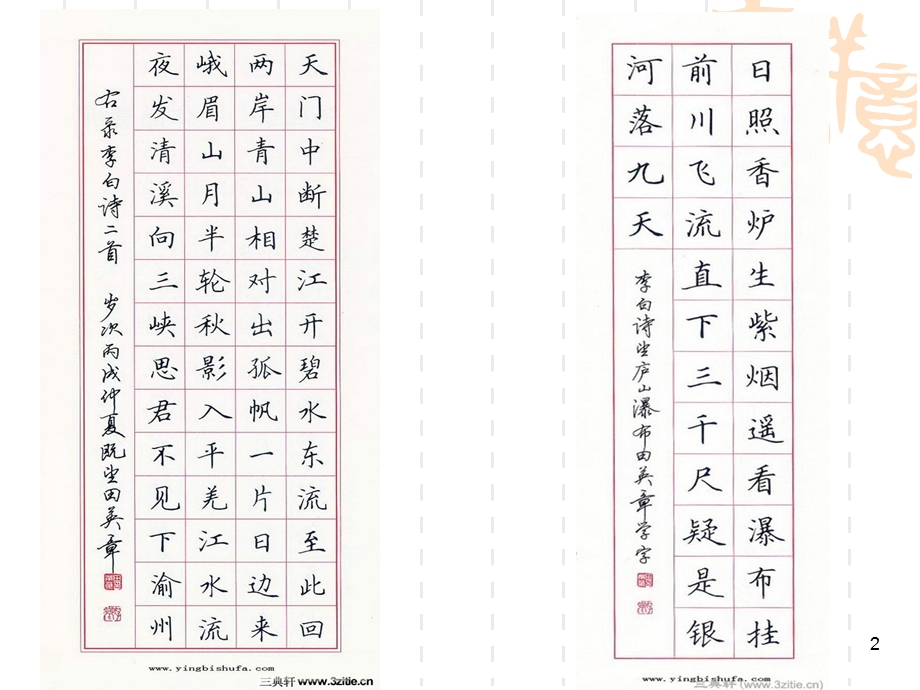 天门中断楚江开碧水东流至此回
两岸青山相对出孤帆一片日边来
峨眉山月半轮秋影入平羌江水流
夜发清溪向三峡思君不见下渝州
右录李白诗二首 岁次丙戌仲夏既望田英章
www.yingbishufa.com
三典轩 www.3zitie.cn
日照香炉生紫烟遥看瀑布挂
前川飞流直下三千尺疑是银
河落九天
李白诗望庐山瀑布田英章学字
www.yingbishufa.com
三典轩 (www.3zitie.cn)
2